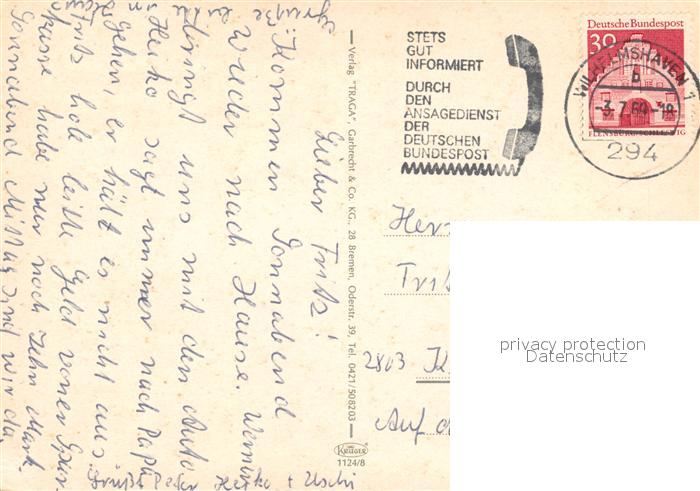 Lieber Fritz!
Kommen Sonnabend
wieder nach Hause. Werner
bringt uns mit den Auto
Heiko sagt immer nach Papa
gehen, er hält es nicht aus.
Fritz hole bitte Geld von
Kasse habe nur noch Zehn Mark.
Sonnabend Mittag sind wir da.
Grüße
Heiko + Uschi
Verlag "TRAGA", Garbrecht & Co. KG., 28 Bremen, Oderstr. 39, Tel. 0421/508203
KRÜGER
1124/8
STETS
GUT
INFORMIERT
DURCH
DEN
ANSAGEDIENST
DER
DEUTSCHEN
BUNDESPOST
Deutsche Bundespost
30
FLENSBURG/SCHLESWIG
WILHELMSHAVEN 1
b
-3.7.69-18
294
2803
Auf
privacy protection
Datenschutz